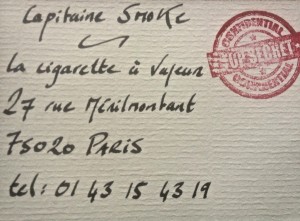 Capitaine Smoke
La cigarette à Vapeur
27 rue Ménilmontant
75020 PARIS
tel: 01 43 15 43 19
CONFIDENTIAL
TOP SECRET
CONFIDENTIAL